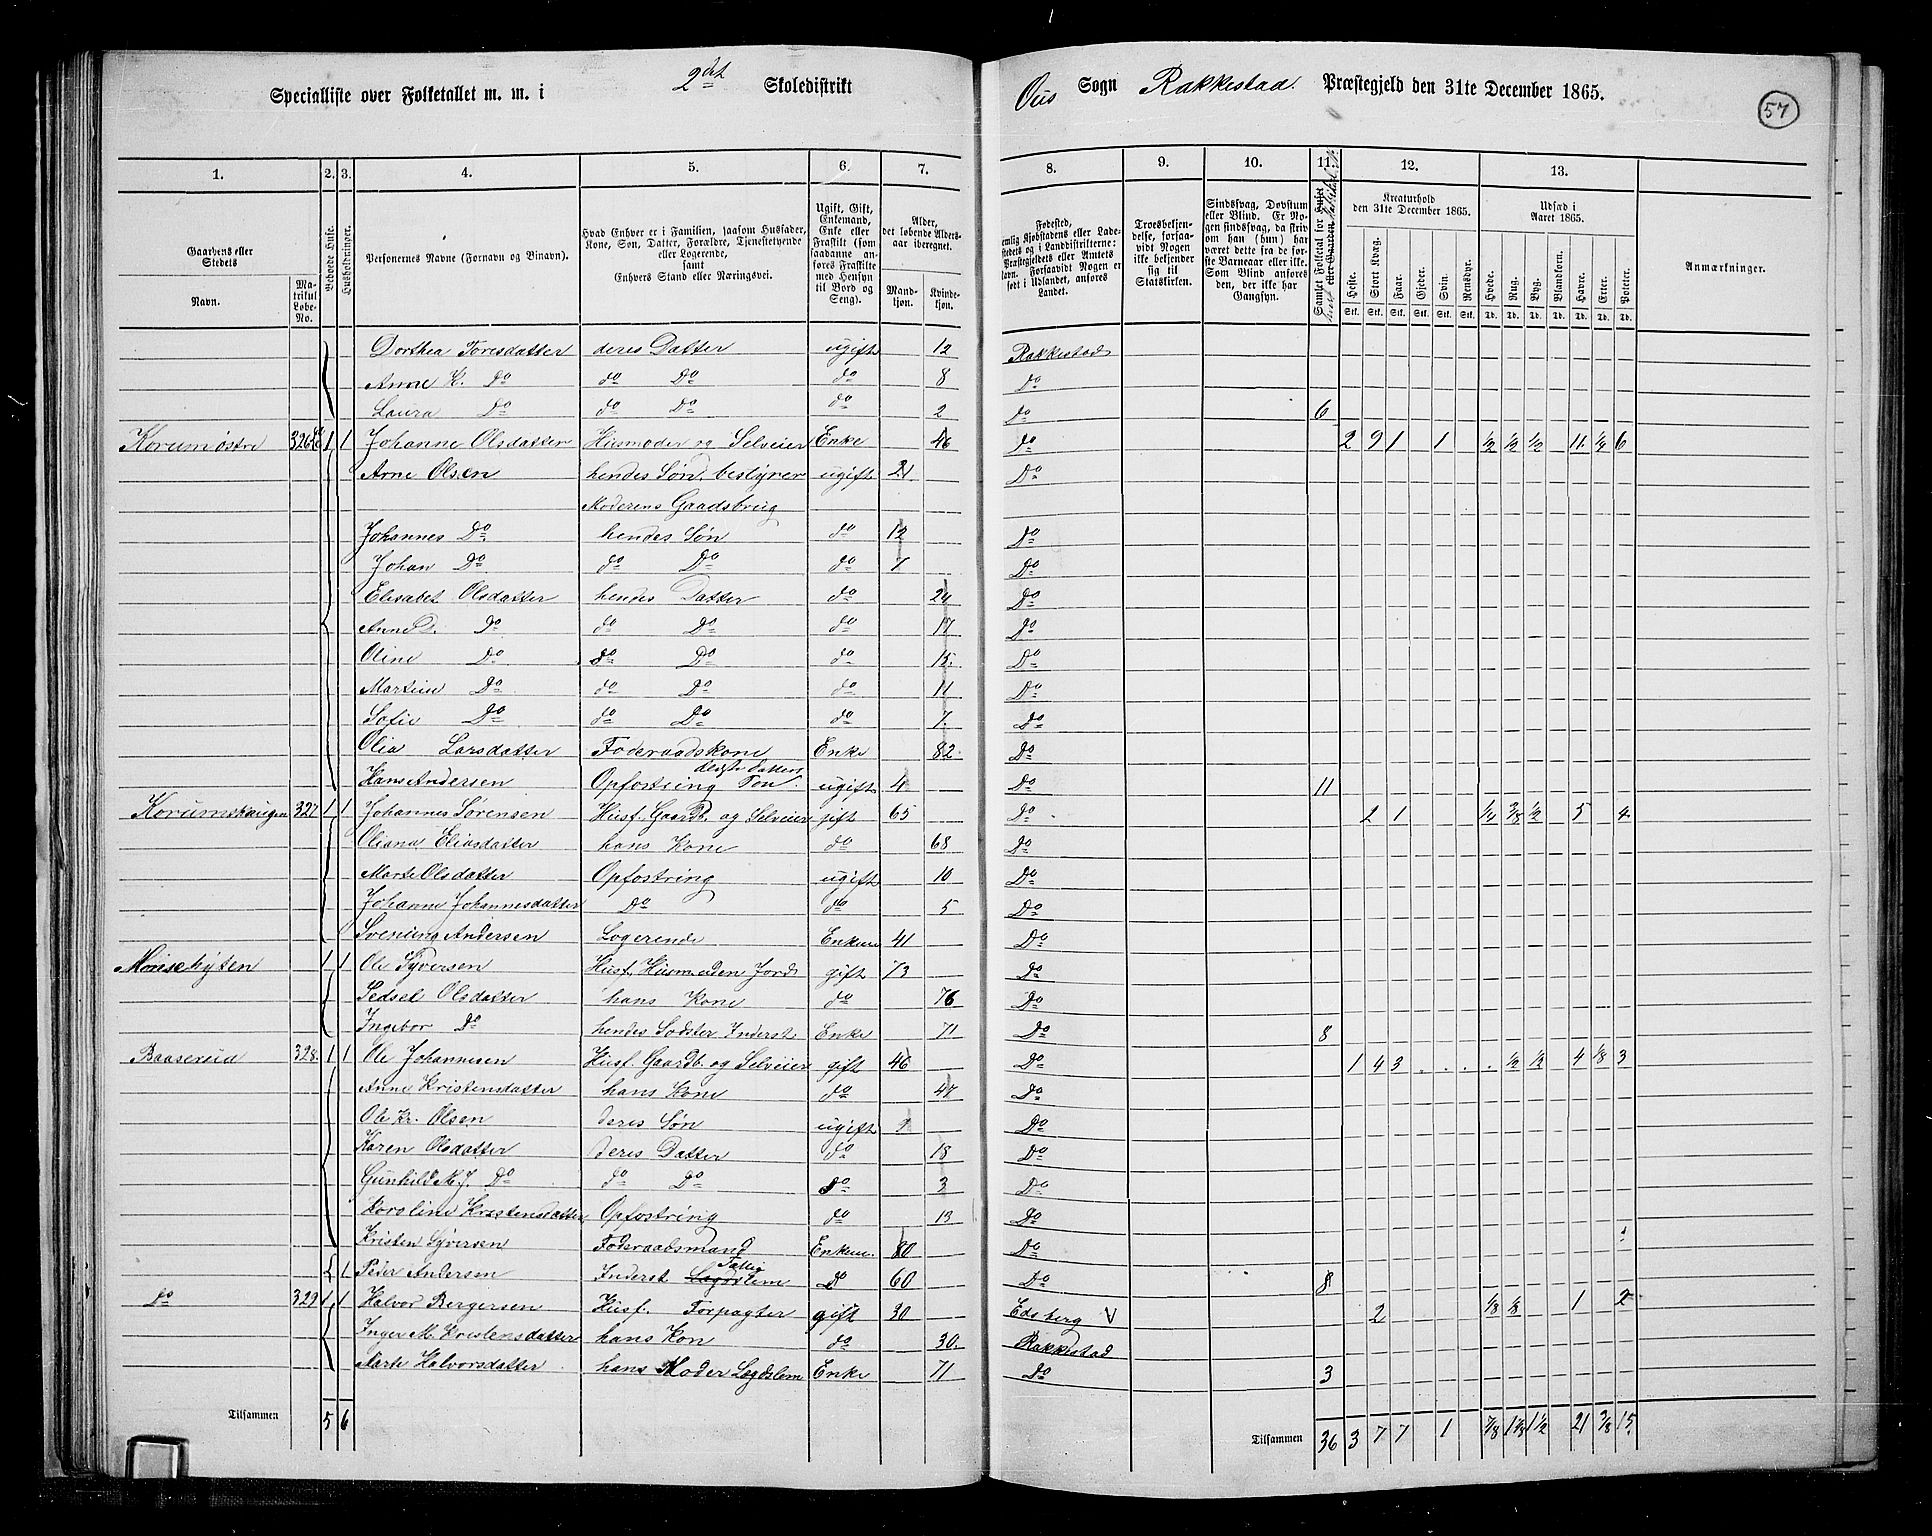 Specialliste over Folketallet m. m. i 2det Skoledistrikt Ous Sogn Rakkestad. Præstegjeld den 31te December 1865.
57
1. 2. 3. 4. 5. 6. 7. 8. 9. 10. 11. 12. 13.
Gaardens eller Stedets
Navn.
Matrikul Løbe-No.
Beboede Huse.
Husholdninger.
Personernes Navne (Fornavn og Binavn).
Hvad Enhver er i Familien, saasom Husfader, Kone, Søn, Datter, Forældre, Tjenestetyende eller Logerende, samt Enhvers Stand eller Næringsvei.
Ugift, Gift, Enkemand, Enke eller Fraskilt (som saadanne anføres Fraskilte med Hensyn til Bord og Seng).
Alder, det løbende Aldersaar iberegnet.
Mandkjøn. Kvindekjøn.
Fødested,
Troesbekjendelse, forsaavidt Nogen ikke bekjender sig til Statskirken.
Sindssvag, Døvstum eller Blind. Er Nogen sindssvag, da skrives om han (hun) har været dette fra de første Barneaar eller ikke. Som Blind anføres den, der ikke har Gangsyn.
Samlet Folketal for Huset eller Gaarden
Kreaturhold den 31te December 1865.
Heste. Stort Kvæg. Faar. Gjeder. Svin. Rensdyr.
Udsæd i Aaret 1865.
Hvede. Rug. Byg. Blandkorn. Havre. Erter. Poteter.
Anmærkninger.
Dorthea Toresdatter deres Datter ugift 12 Rakkestad
Anne K. Do do Do do 8 Do
Laura Do do Do do 2 do 6
Korumøstre 326 1 1 Johanne Olsdatter Husmoder og Selveier Enke 46 Do 2 9 1 1 1/2 1/2 1/2 11 1/4 6
Arne Olsen hendes Søn, bestyrer ugift 21 Do
Moderens Gaadsbrug
Johannes Do hendes Søn do 12 Do
Johan Do do Do do 7 Do
Elisabet Olsdatter hendes Datter do 24 Do
Anne D. Do do Do do 17 Do
Oline Do do Do do 15 Do
Martine Do do Do do 11 Do
Sofie Do do Do do 7 Do
Olia Larsdatter Føderaadskone Enke 82 Do
Hans Andersen Opfostring ugift 4 Do 11
Korumskaugen 327 1 1 Johannes Sørensen Husf. Gaardb. og Selveier gift 65 Do 2 1 1/4 3/8 1/2 5 4
Oliana Eliasdatter hans Kone do 68 Do
Marte Olsdatter Opfostring ugift 10 Do
Johanne Johannesdatter Do do 5 Do
Svening Andersen Logerende Enkem 41 Do
1 1 Ole Syversen Husf. Husmanden Jord gift 73 Do
Sedsel Olsdatter hans Kone do 76 Do
Ingebor Do hendes Sødster Inderst Enke 71 Do 8
328 1 1 Ole Johannesen Husf. Gaardb. og Selveier gift 46 Do 1 4 3 1/2 1/2 4 1/8 3
Anne Kristensdatter hans Kone do 47 Do
Ole Kr. Olsen deres Søn ugift Do
Karen Olsdatter deres Datter do 18 Do
Gunhild M. J. Do do Do do 3 Do
Karoline Kristensdatter Opfostring do 13 Do
Kristen Syversen Føderaadsmand Enkem. 80 Do
1 Peder Andersen Inderst Lægdslem Do 60 Do 8
Do 329 1 1 Halvor Bergersen Husf. Forpagter gift 30 Edsberg V 2 1/8 1/8 1 2
Inger M. Kristensdatter hans Kon do 30. Rakkestad
Marte Halvorsdatter hans Moder Lægdslem Enke 71 Do 3
Tilsammen 5 6 Tilsammen 36 3 7 7 1 7/8 1 1/8 1 1/2 21 3/8 15